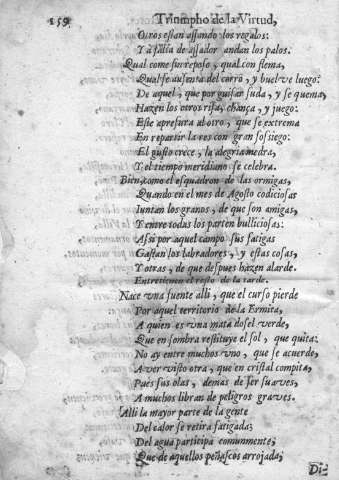 159 Triumpho de la Virtud,
Otros estan assando los regalos:
Y à falta de assador andan los palos.
Qual come sin reposo, qual con flema,
Qual se ausenta del carro, y buelve luego:
De aquel, que por guisar suda, y se quema,
Hazen los otros risa, chança, y juego:
Este apresura al otro, que se extrema
En repartir la res con gran sossiego:
El gusto crece, la alegria medra,
Y el tiempo meridiano se celebra.
Bien, como el esquadron de las ormigas,
Quando en el mes de Agosto codiciosas
Iuntan los granos, de que son amigas,
Y entre todas los parten bulliciosas:
Assi por aquel campo sus fatigas
Gastan los labradores, y estas cosas,
Y otras, de que despues hazen alarde.
Entretienen el resto de la tarde.
Nace vna fuente alli, que el curso pierde
Por aquel territorio de la Ermita,
A quien es vna mata dosel verde,
Que en sombra restituye el sol, que quita:
No ay entre muchos vno, que se acuerde,
A ver visto otra, que en cristal compita,
Pues sus olas, demas de ser suaves,
A muchos libran de peligros graves.
Alli la mayor parte de la gente
Del calor se retira fatigada;
Del agua participa comunmente;
Que de aquellos peñascos arrojada;
Di-